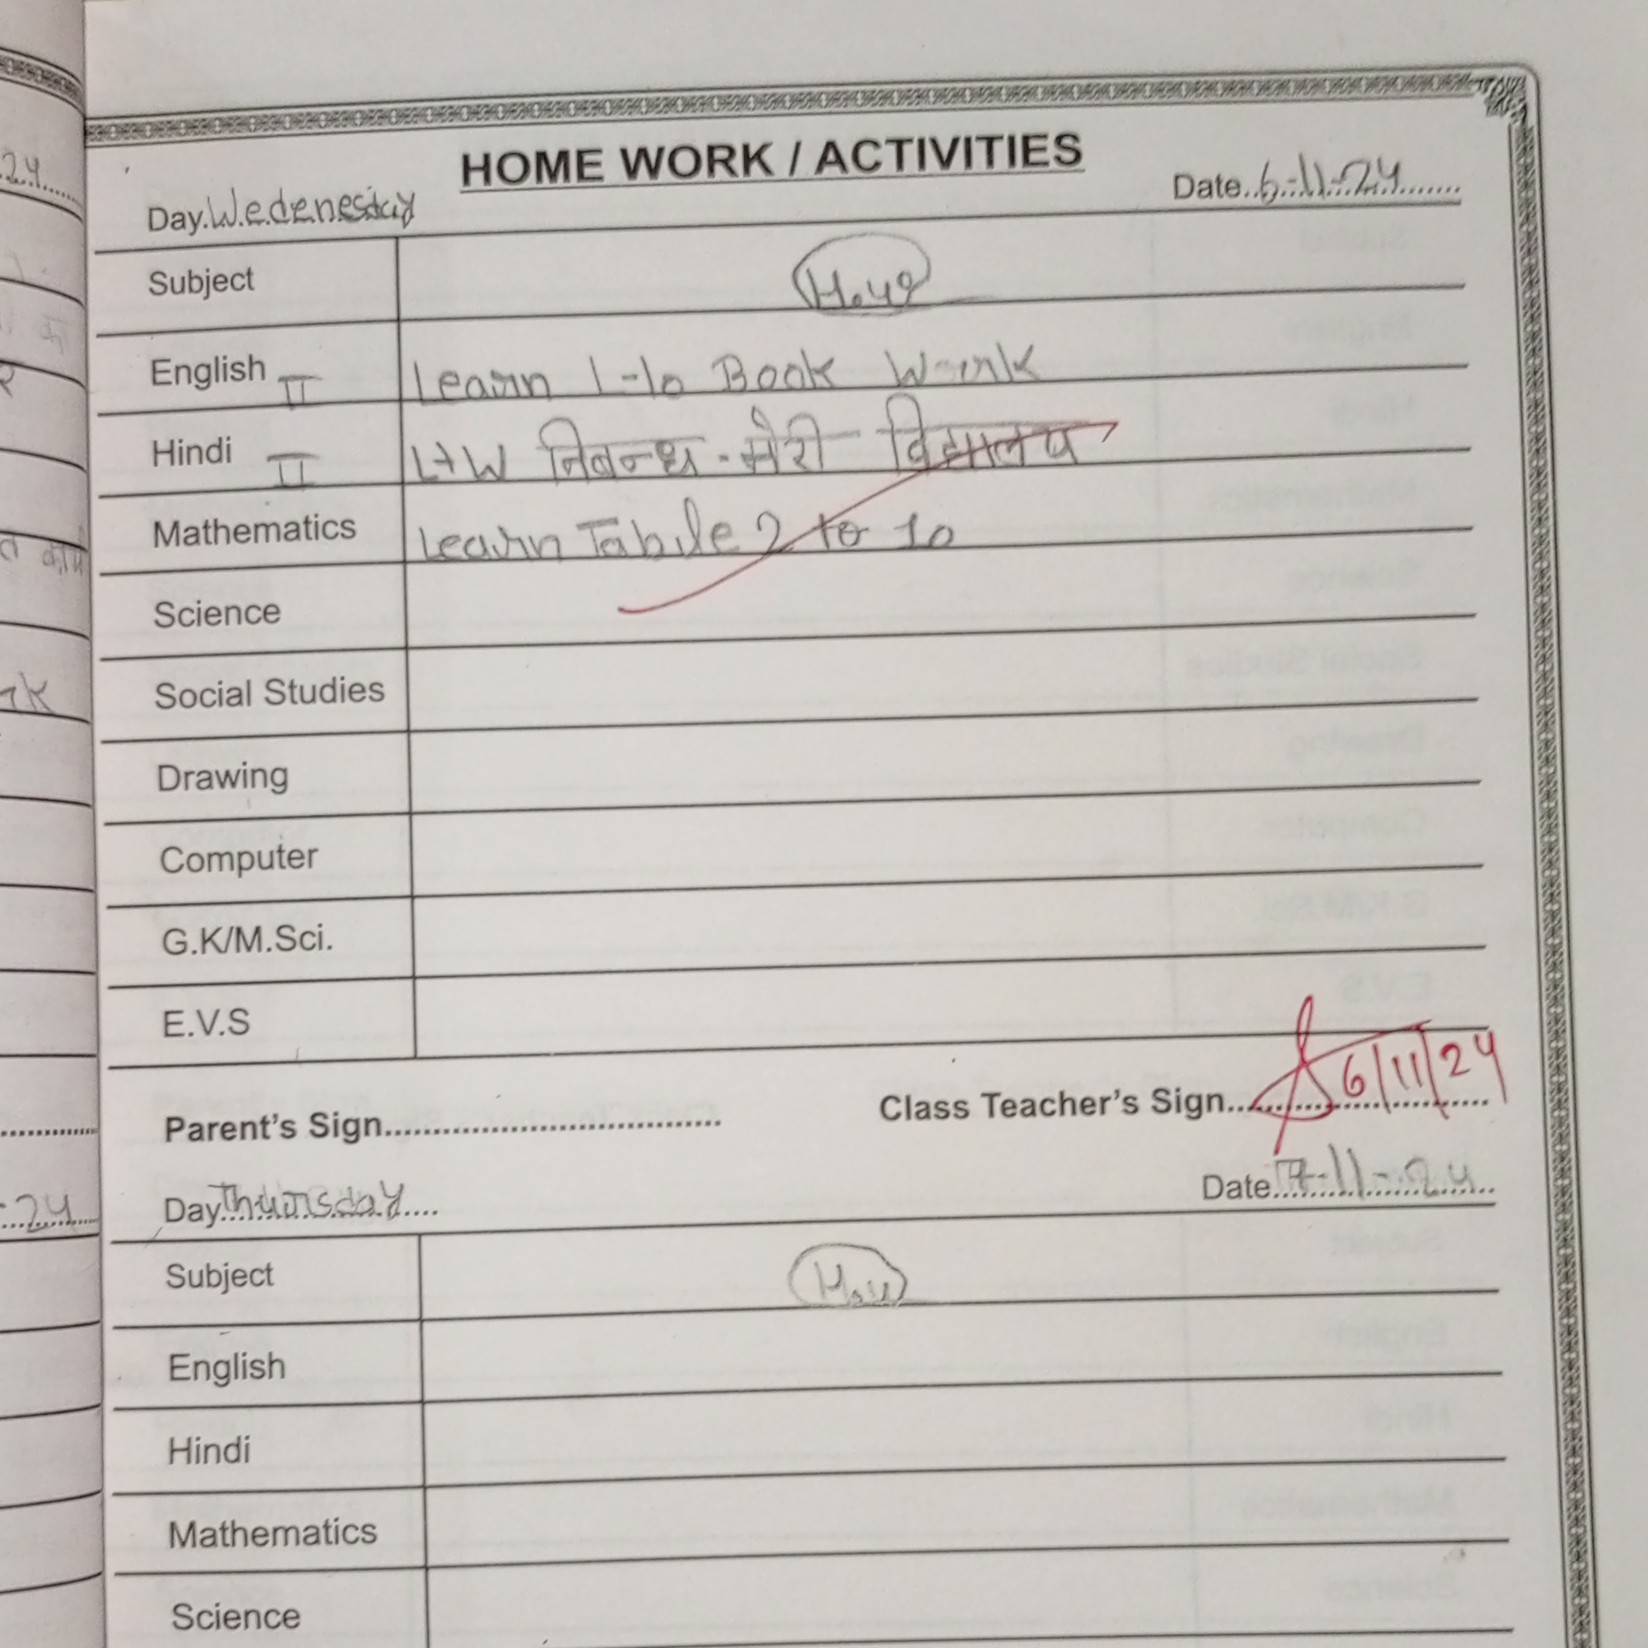 HOME WORK / ACTIVITIES
Day.Wedenesday Date..6-11-24
Subject
English II Learn 1-10 Book Work
Hindi II L+W निबन्ध - मेरी विद्यालय
Mathematics Learn Tabile 2 to 10
Science
Social Studies
Drawing
Computer
G.K/M.Sci.
E.V.S
Parent's Sign Class Teacher's Sign 6/11/24
Day Thursday Date 7-11-24
Subject H.W
English
Hindi
Mathematics
Science